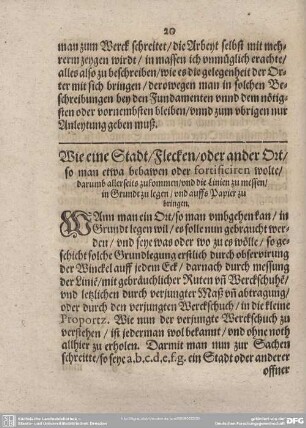 20
man zum Werck schreitet/die Arbeyt selbst mit meh-
rerm zeygen wirdt/in massen ich vnmüglich erachte/
alles also zu beschreiben/wie es die gelegenheit der Or-
ter mit sich bringen/derowegen man in solchen Be-
schreibungen bey den Fundamenten vnnd dem nötig-
sten oder vornembsten bleiben/vnnd zum vbrigen nur
Anleytung geben muß.
Wie eine Stadt/Flecken/oder ander Ort/
so man etwa bebawen oder fortificiren wolte/
darumb allerseits zukommen/vnd die Linien zu messen/
in Grundt zu legen/vnd auffs Papier zu
bringen.
WAnn man ein Ort/so man vmbgehen kan/in
Grundt legen will/es solle nun gebraucht wer-
den/vnd seye was oder wo zu es wölle/so ge-
schicht solche Grundlegung erstlich durch observirung
der Winckel auff jedem Eck/darnach durch messung
der Linie/mit gebräuchlicher Ruten vñ Werckschuhẽ/
vnd letzlichen durch verjungter Maß vñ abtragung/
oder durch den verjungten Werckschuch/in die kleine
Proportz. Wie nun der verjungte Werckschuch zu
verstehen/ist jederman wol bekannt/vnd ohne noth
allhier zu erholen. Darmit man nun zur Sachen
schreitte/so seye a.b.c.d.e.f.g. ein Stadt oder anderer
offner